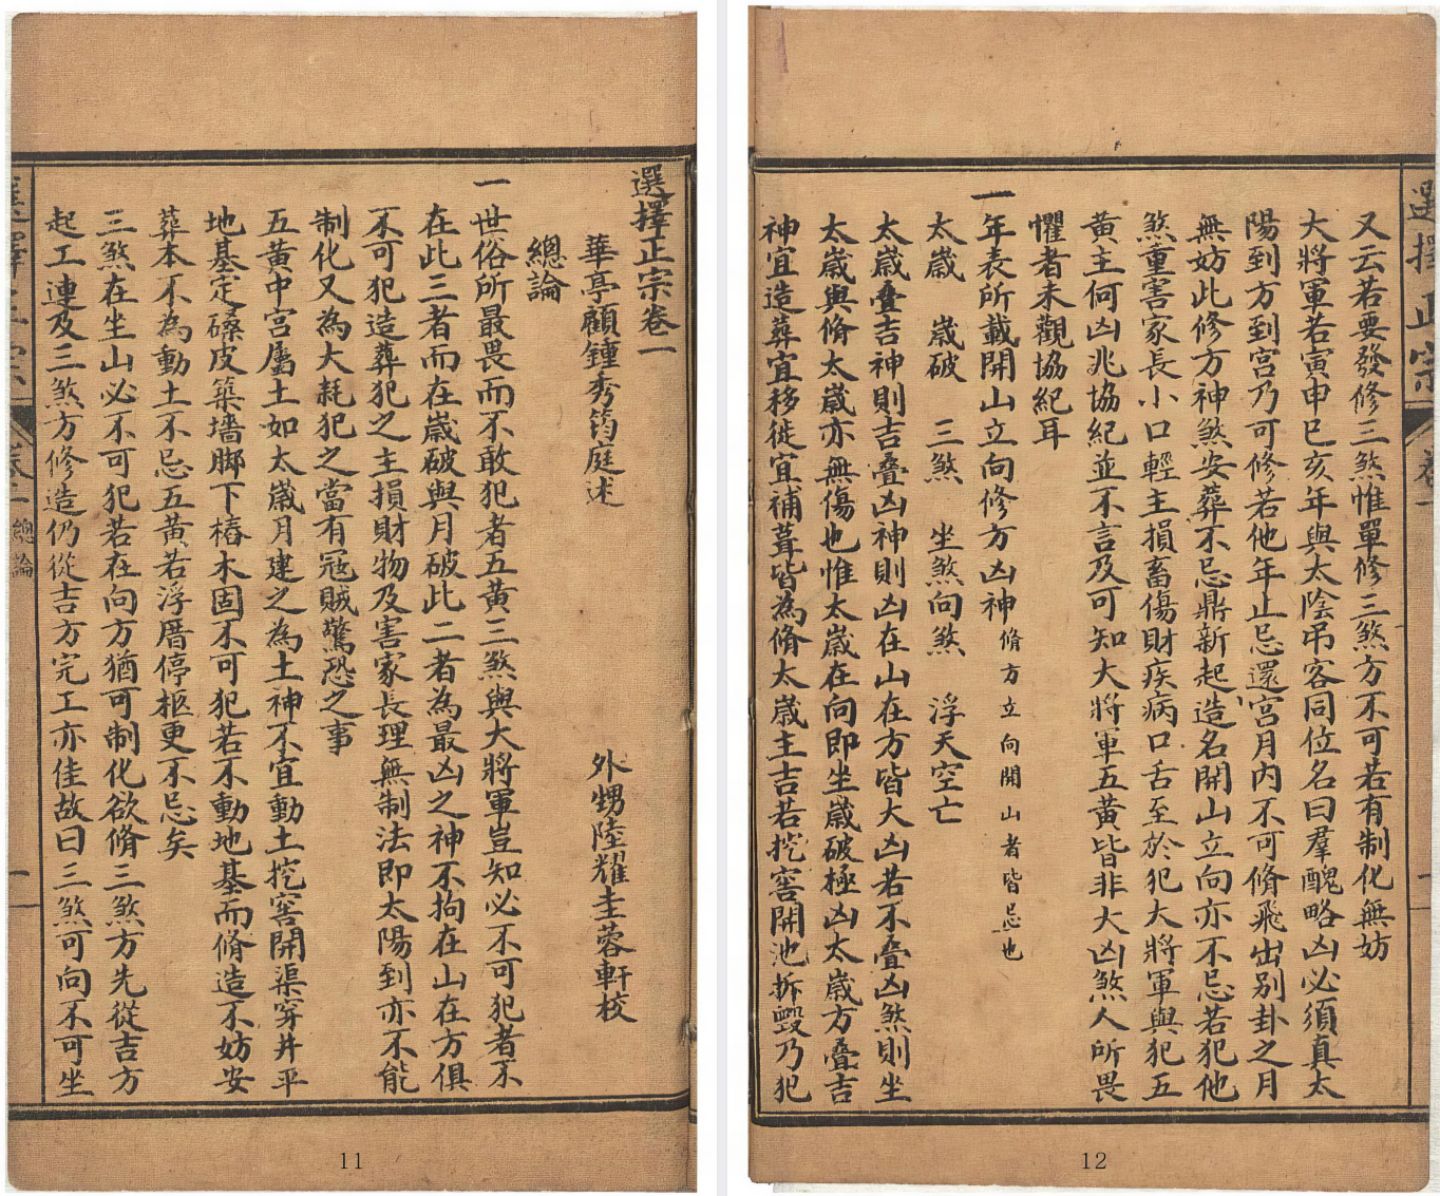 選擇正宗卷一
華亭顧鍾秀筠庭述　外甥陸耀圭蓉軒校
總論
一世俗所最畏而不敢犯者五黃三煞與大將軍豈知必不可犯者不
在此三者而在歲破與月破此二者為最凶之神不拘在山在方俱
不可犯造葬犯之主損財物及害家長理無制法即太陽到亦不能
制化又為大耗犯之當有冦賊驚恐之事
五黃中宮屬土如太歲月建之為土神不宜動土挖窖開渠穿井平
地基定磉皮築墻脚下樁木固不可犯若不動地基而脩造不妨安
葬本不為動土不忌五黃若浮厝停柩更不忌矣
三煞在坐山必不可犯若在向方猶可制化欲脩三煞方先從吉方
起工連及三煞方修造仍從吉方完工亦佳故曰三煞可向不可坐
選擇正宗　卷一　總論　一
11
選擇正宗　卷一　一
又云若要發修三煞惟單修三煞方不可若有制化無妨
大將軍若寅申巳亥年與太陰吊客同位名曰羣醜略凶必須真太
陽到方到宮乃可修若他年止忌還宮月內不可脩飛出別卦之月
無妨此修方神煞安葬不忌鼎新起造名開山立向亦不忌若犯他
煞重害家長小口輕主損畜傷財疾病口舌至於犯大將軍與犯五
黃主何凶兆協紀並不言及可知大將軍五黃皆非大凶煞人所畏
懼者未觀協紀耳
一年表所載開山立向修方凶神脩方立向開山者皆忌也
太歲　歲破　三煞　坐煞向煞　浮天空亡
太歲疊吉神則吉疊凶神則凶在山在方皆大凶若不疊凶煞則坐
太歲與脩太歲亦無傷也惟太歲在向即坐歲破極凶太歲方疊吉
神宜造葬宜移徙宜補葺皆為脩太歲主吉若挖窖開池拆毀乃犯
12